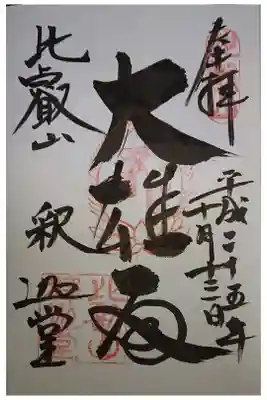 奉拝
平成二十五年
十月十三日
大雄殿
比叡山
釈迦堂